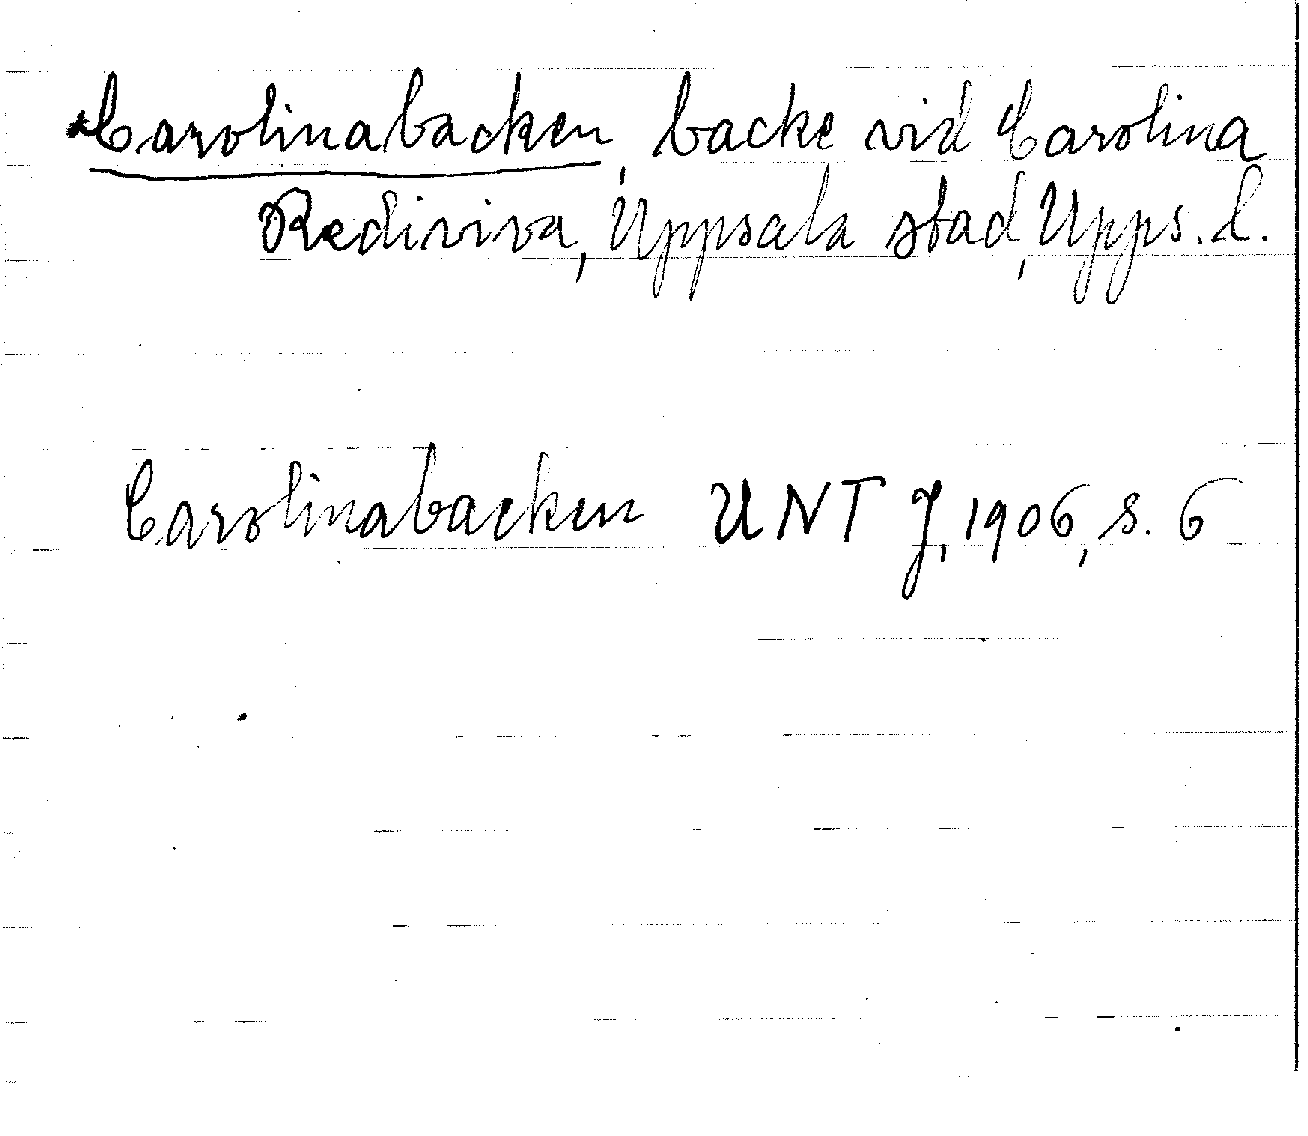 *Carolinabacken, backe vid Carolina
Rediviva, Uppsala stad, Upps. l.
Carolinabacken UNT J, 1906, s. 6